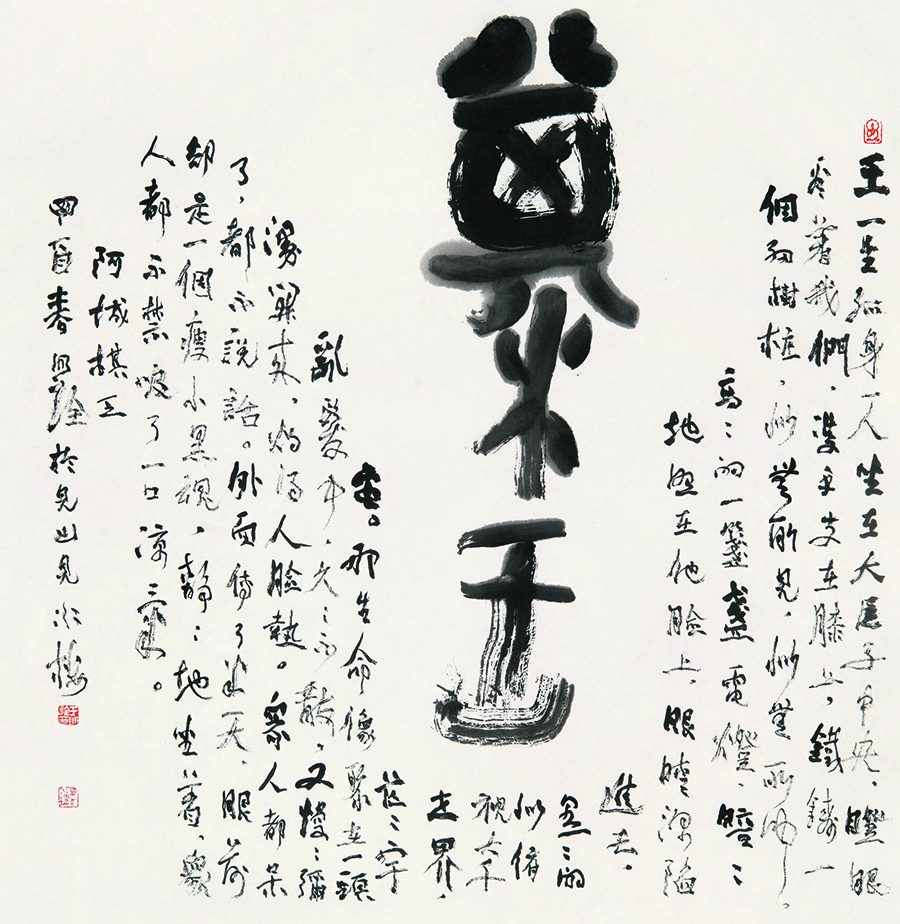 棊王
王一生孤身一人坐在大屋子中央，瞪眼
看着我們，雙手支在膝上，鐵鑄一
個細樹樁，似無所見，似無所聞。
高〻的一盞盞電燈，暗〻
地照在他臉上，眼睛深陷
進去，
黑〻的
似俯
視大千
世界，
茫〻宇
宙。那生命像聚在一頭
亂髮中，久〻不散，又慢〻彌
漫開來，灼得人臉熱。眾人都呆
了，都不說話。外面傳了半天，眼前
卻是一個瘦小黑魂，靜〻地坐着，眾
人都不禁吸了一口涼氣。
阿城棋王
酉春於見山見水樓